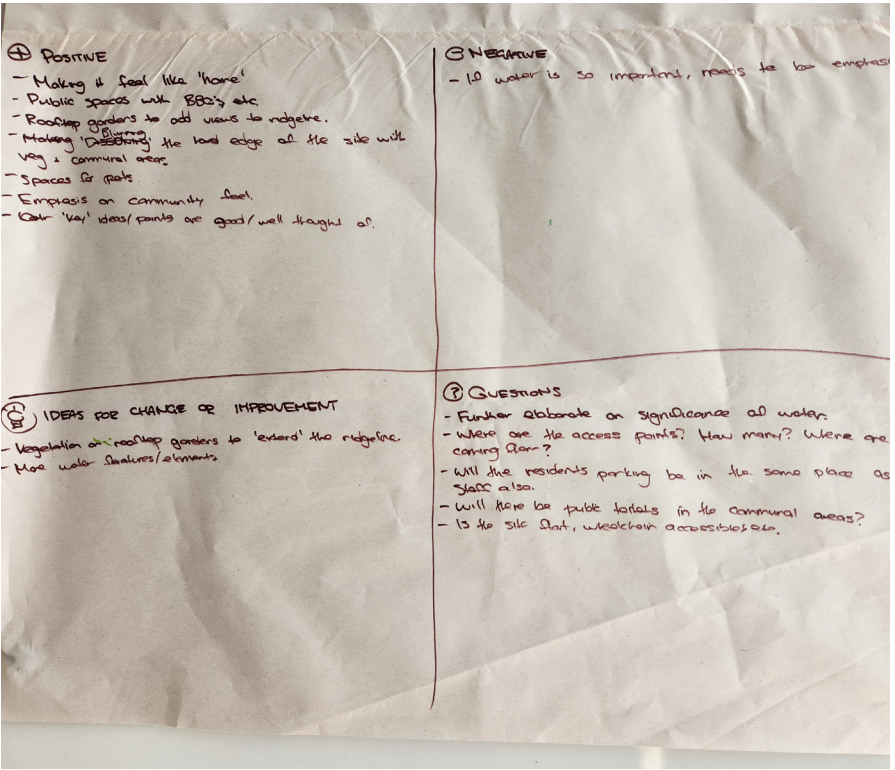 + POSITIVE
- Making it feel like 'home'
- Public spaces with BBQ's etc.
- Rooftop gardens to add views to ridgeline.
Blurring
- the hard edge of the site with
veg + communal areas
- Spaces for pets
- Emphasis on community feel.
- 'key' ideas/points are good/well thought of.
- NEGATIVE
- If water is so important, needs to be emphas
IDEAS FOR CHANGE OR IMPROVEMENT
- Vegetation on rooftop gardens to 'extend' the ridgeline.
- More water features/elements
? QUESTIONS
- Further elaborate on significance of water.
- Where are the access points? How many? Where are
coming from?
- Will the residents parking be in the same place as
staff also.
- Will there be public toilets in the communal areas?
- Is the site flat, wheelchair accessible etc.